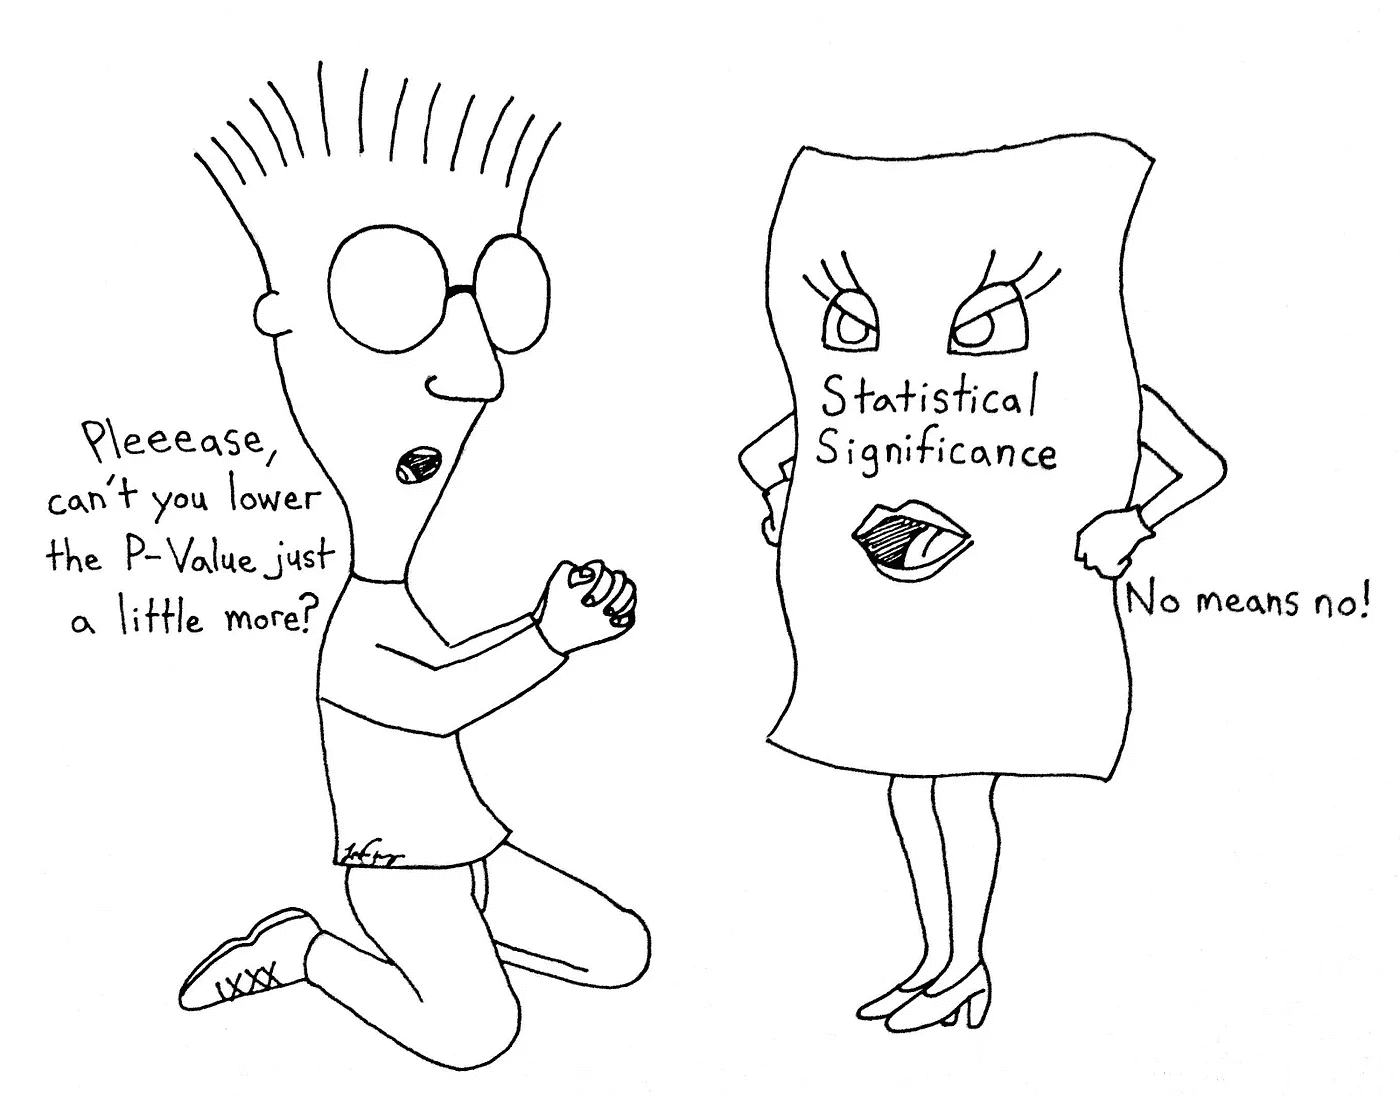 Pleeease,
can't you lower
the P-Value just
a little more?
Statistical
Significance
No means no!